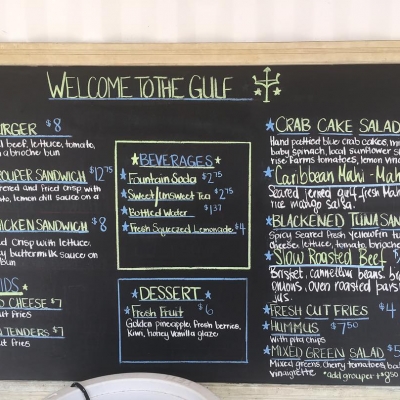 WELCOME TO THE GULF
URGER $8
beef, lettuce, tomato,
brioche bun
OUPER SANDWICH $12.75
ered and fried crisp with
to, lemon dill sauce on a
CHICKEN SANDWICH $8
crisp with lettuce,
buttermilk sauce on
bun
IDS
O CHEESE $7
ut fries
TENDERS $7
ut fries
BEVERAGES
Fountain Soda $2.75
Sweet/UnSweet Tea $2.75
Bottled Water $1.37
Fresh Squeezed Lemonade $4
DESSERT
Fresh Fruit $6
Golden pineapple, Fresh berries,
Kiwi, honey vanilla glaze
CRAB CAKE SALAD
Hand pattied blue crab cakes,
baby spinach, local sunflower
rise Farms tomatoes, lemon
Caribbean Mahi-Mah
Seared jerked gulf fresh Mahi
rice mango salsa.
BLACKENED TUNA SAN
Spicy Seared Fresh Yellowfin
cheese, lettuce, tomato, brioche
Slow Roasted Beef
Brisket, cannellini beans,
onions, oven roasted
jus.
FRESH CUT FRIES $4
HUMMUS $7.50
with pita chips
MIXED GREEN SALAD $5
Mixed greens, cherry tomatoes
vinaigrette *add grouper +$8.50